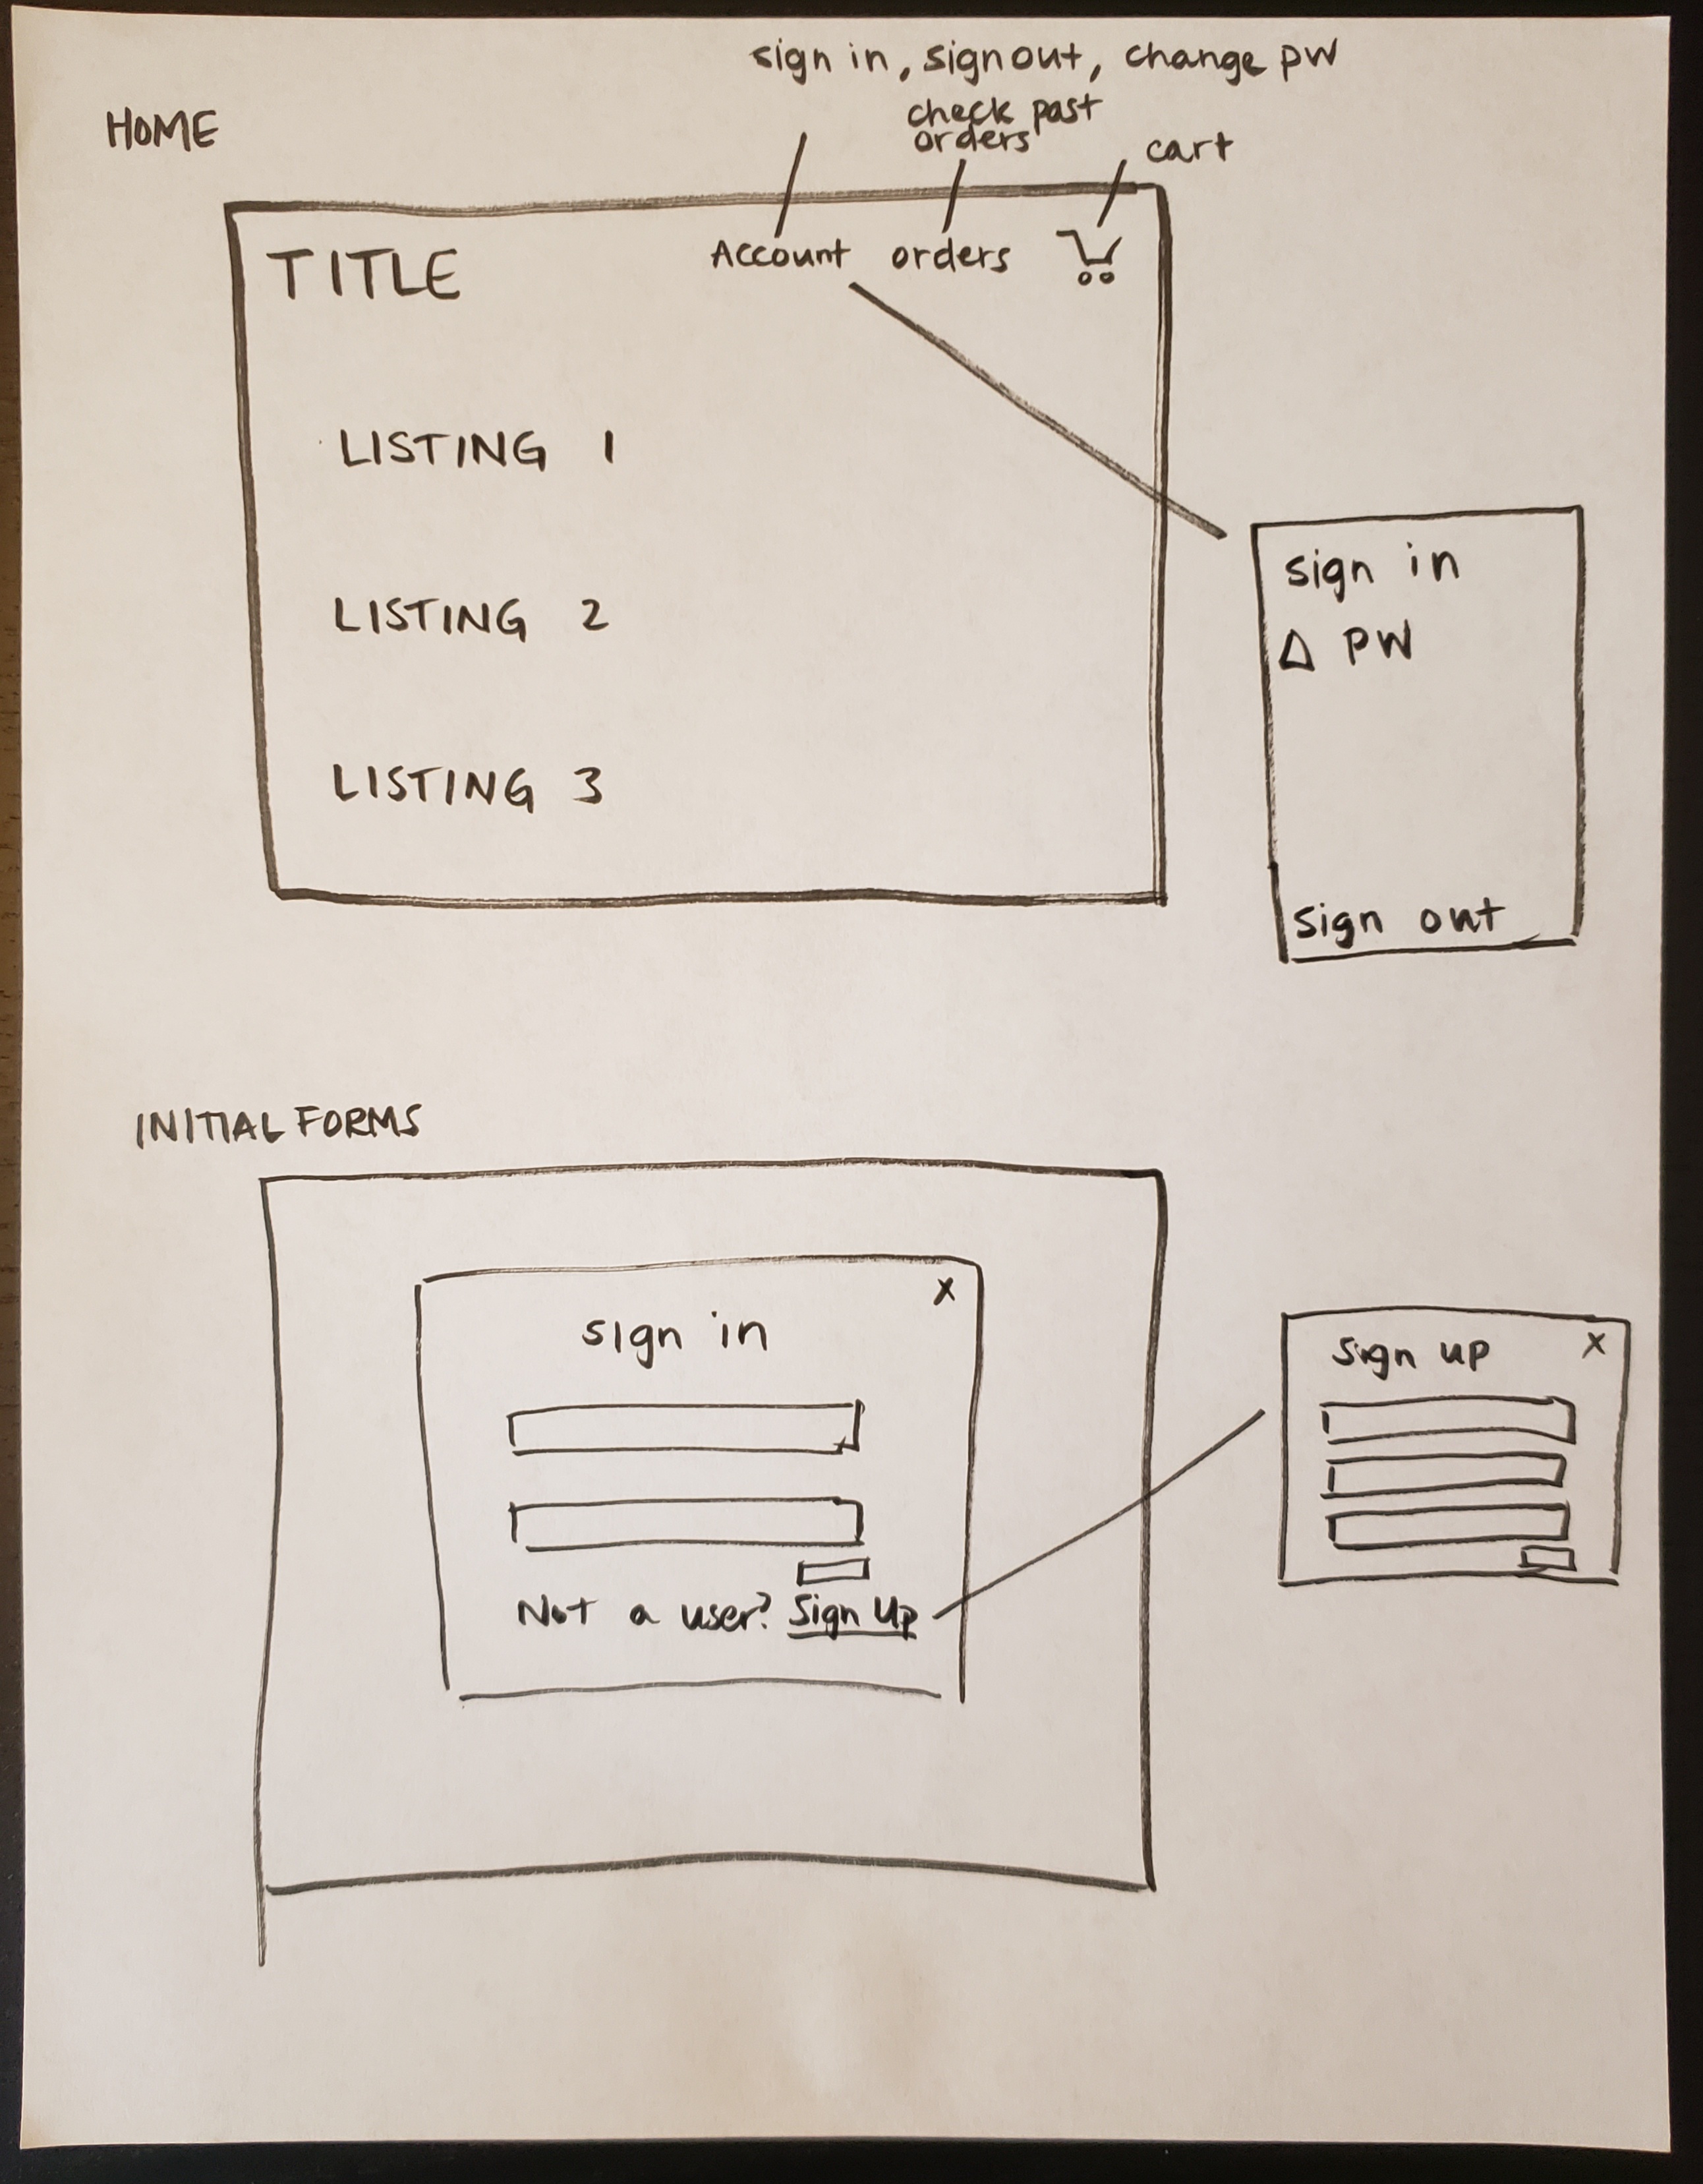 sign in, sign out, change pw
HOME
check past
orders
cart
TITLE
Account orders
LISTING 1
LISTING 2
LISTING 3
sign in
Δ PW
sign out
INITIAL FORMS
x
sign in
Not a user? Sign Up
sign up x